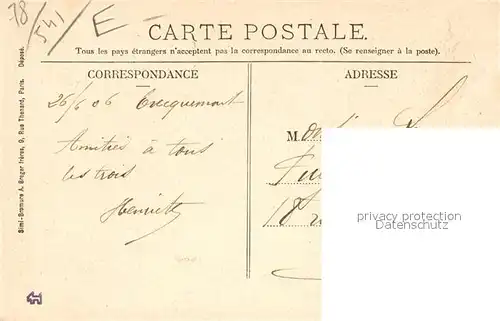 78
541
E
CARTE POSTALE.
Tous les pays étrangers n'acceptent pas la correspondance au recto. (Se renseigner à la poste).
CORRESPONDANCE
26/6 06 Ercquemont
Amitiés à tous
les trois
Henriette
ADRESSE
M
18
privacy protection
Datenschutz
Simi-Bromure A. Breger frères, 9, Rue Thénard, Paris. Déposé.